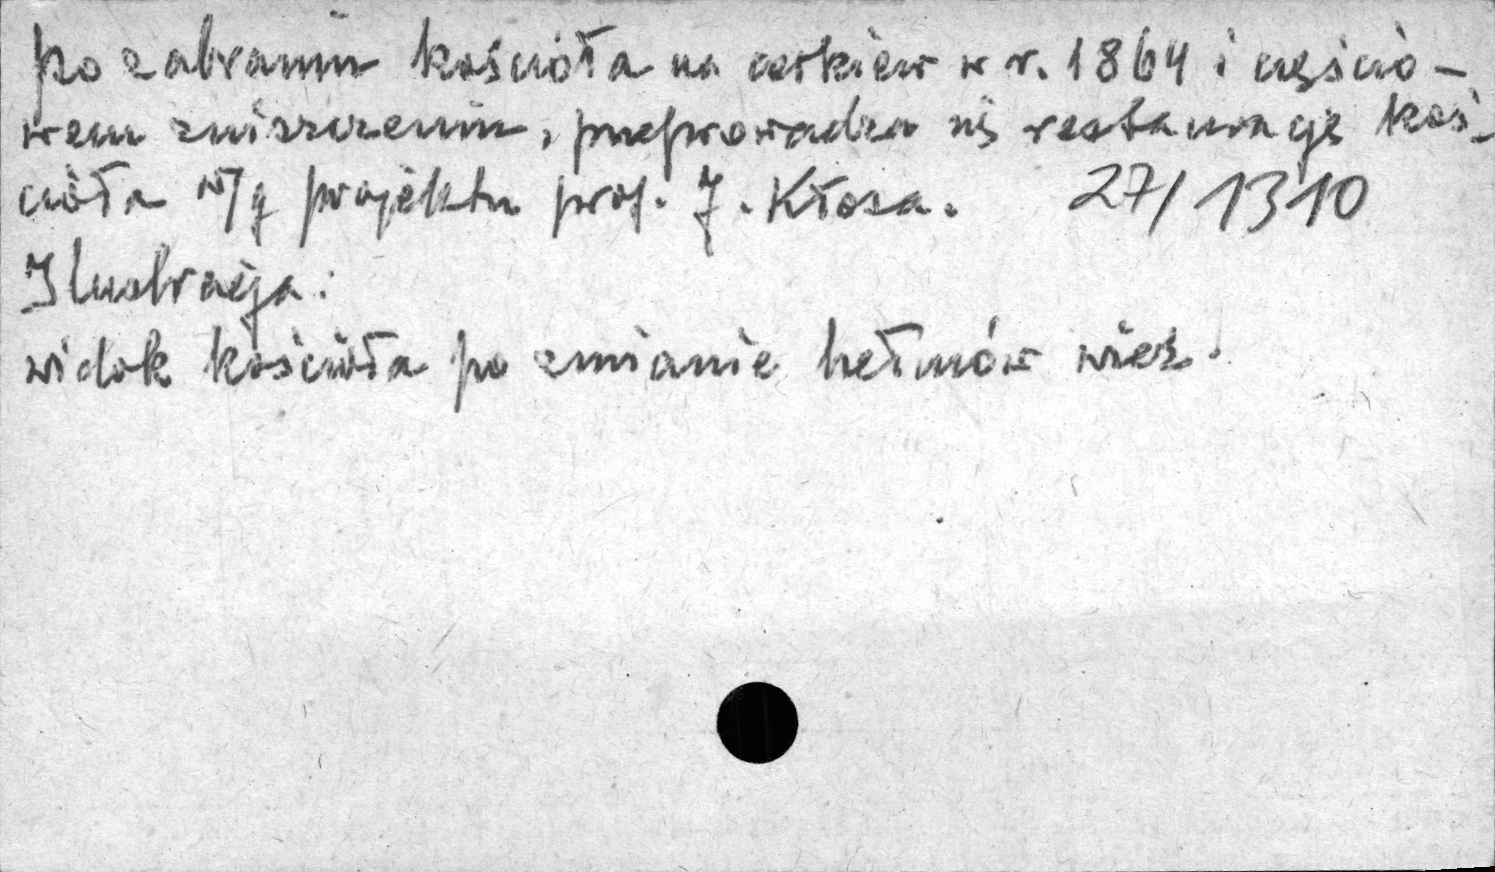 po zabraniu kościoła na cerkiew w r. 1864 i częścio-
wem zniszczeniu, przeprowadza się restaurację koś-
cioła w/g projektu prof. J. Kłosa. 27/1310
Ilustracja:
widok kościoła po zmianie hełmów wież.